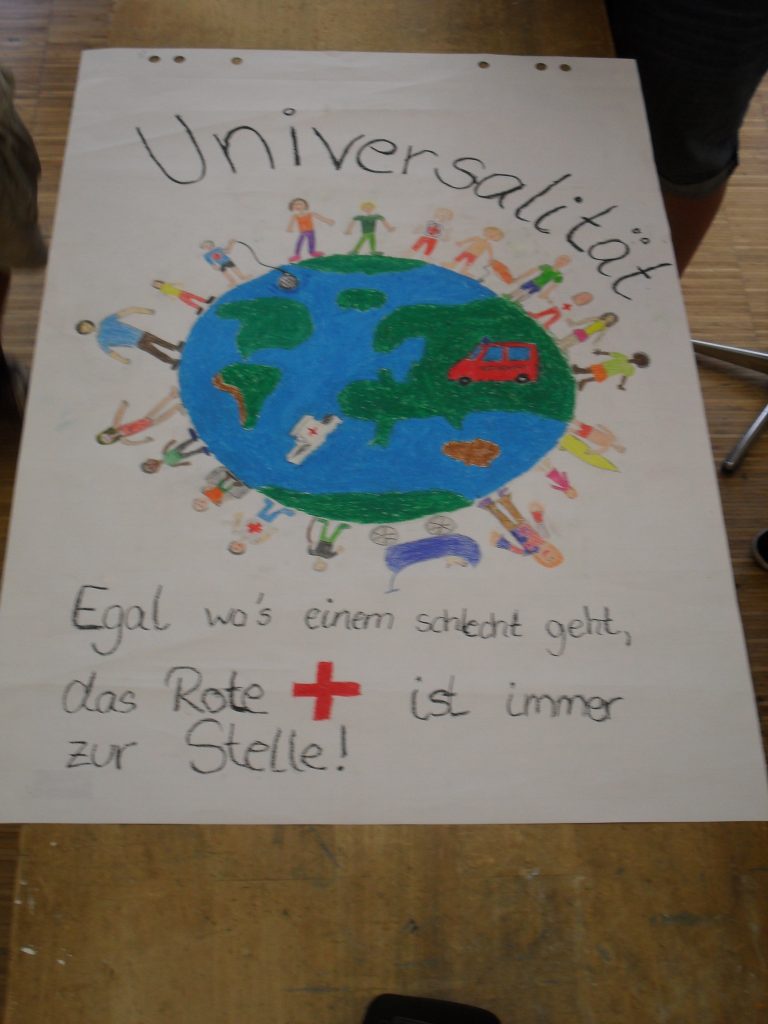 Universalität
Egal wo's einem schlecht geht,
das Rote + ist immer
zur Stelle!